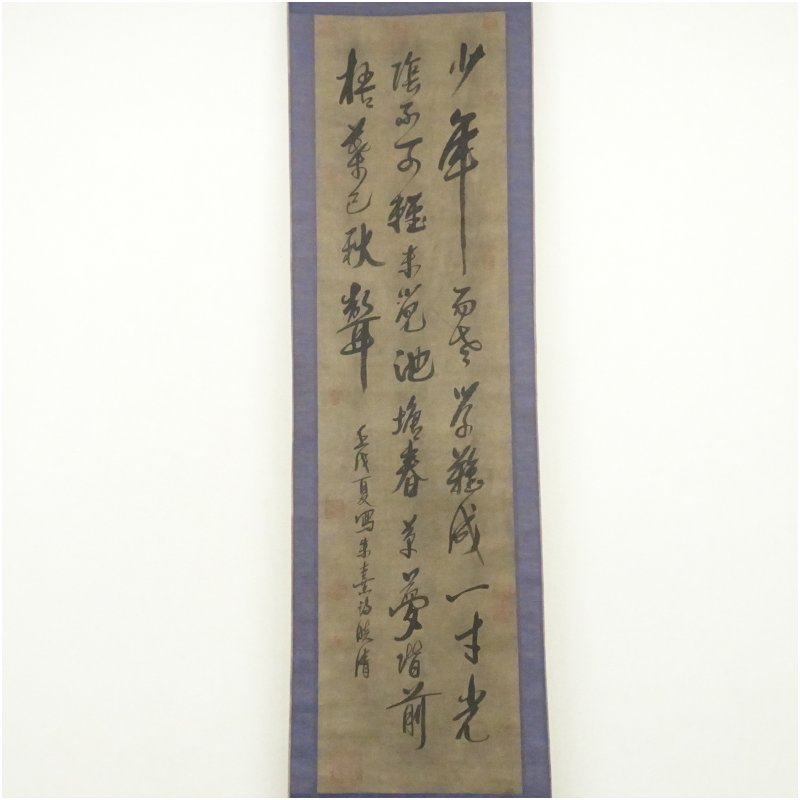 少年而老学難成一寸光
陰不可輕未覺池塘春草夢階前
梧葉已秋聲
壬戌夏寫朱熹詩